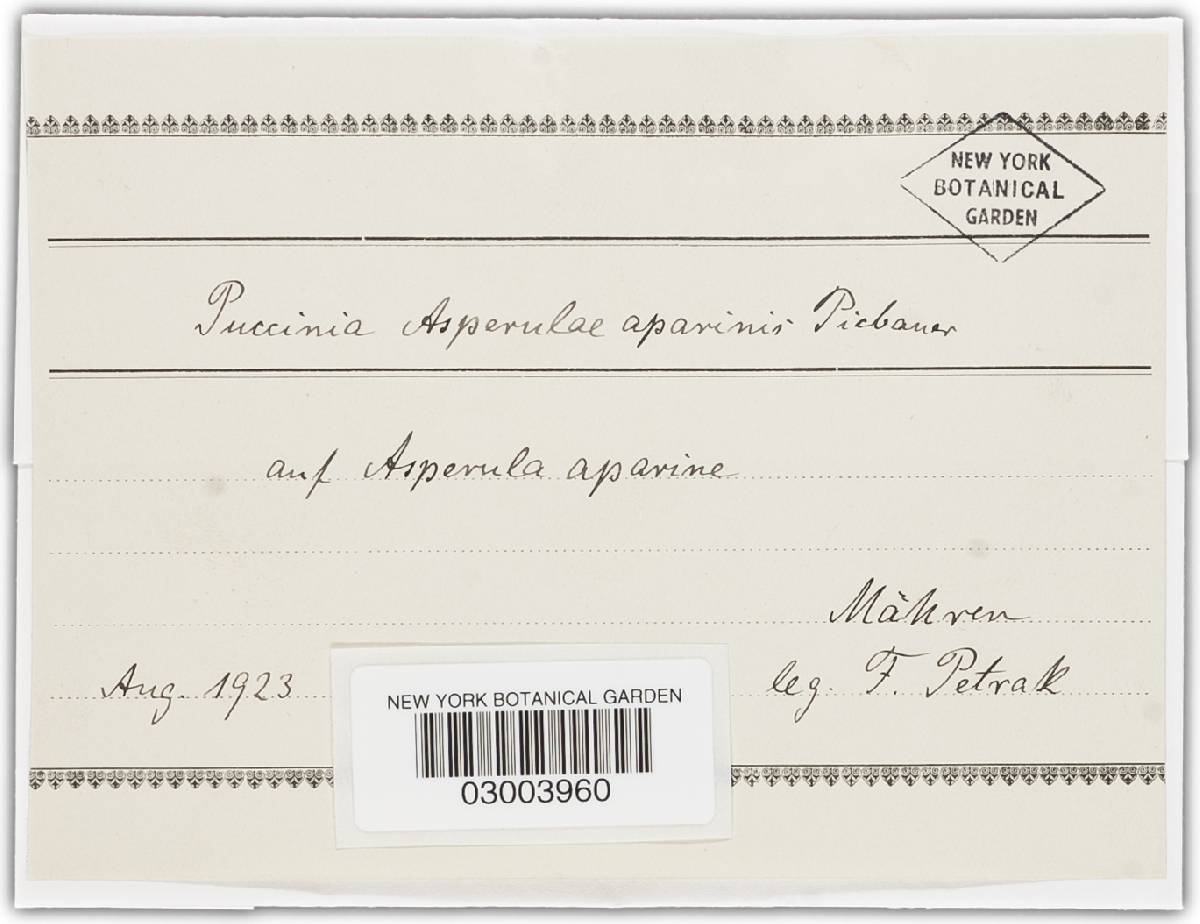 NEW YORK
BOTANICAL
GARDEN
Puccinia Asperulae aparinis Picbauer
auf Asperula aparine
Mähren
Aug. 1923
leg. F. Petrak
NEW YORK BOTANICAL GARDEN
03003960